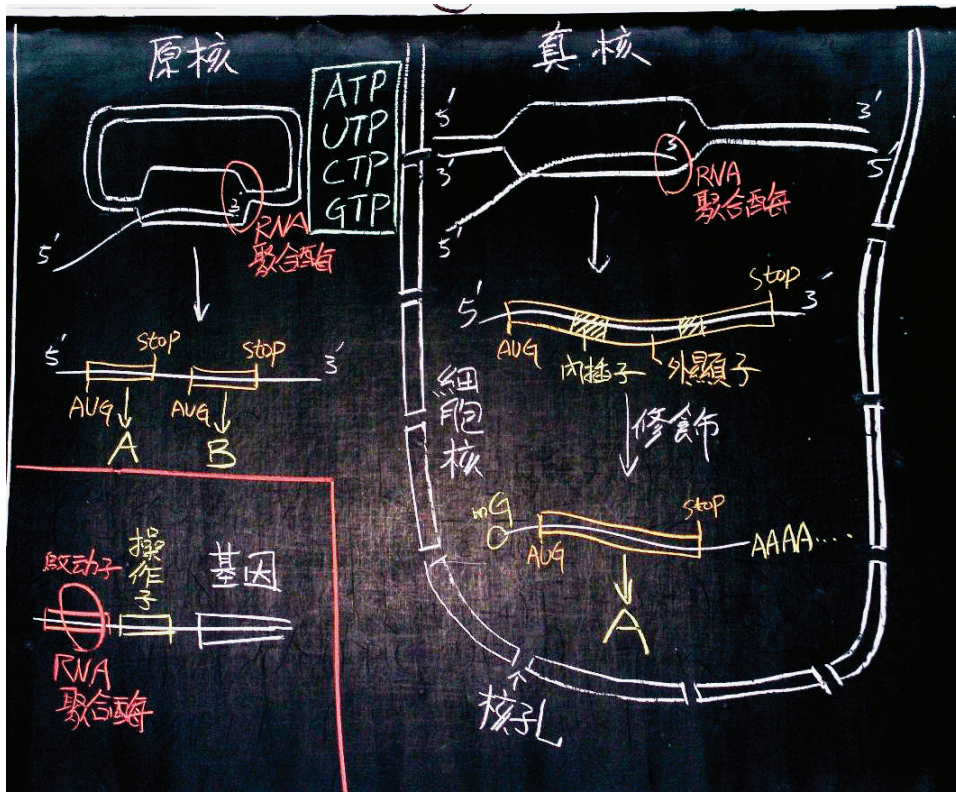 原核
ATP
UTP
CTP
GTP
3'
RNA
聚合酶
5'
5'
stop
stop
3'
AUG
AUG
A
B
操作子
啟动子
基因
RNA
聚合酶
真核
5'
3'
3'
3'
5'
RNA
聚合酶
5'
5'
stop
3'
AUG
內插子
外顯子
細胞核
修飾
mG
stop
AUG
AAAA....
A
核孔